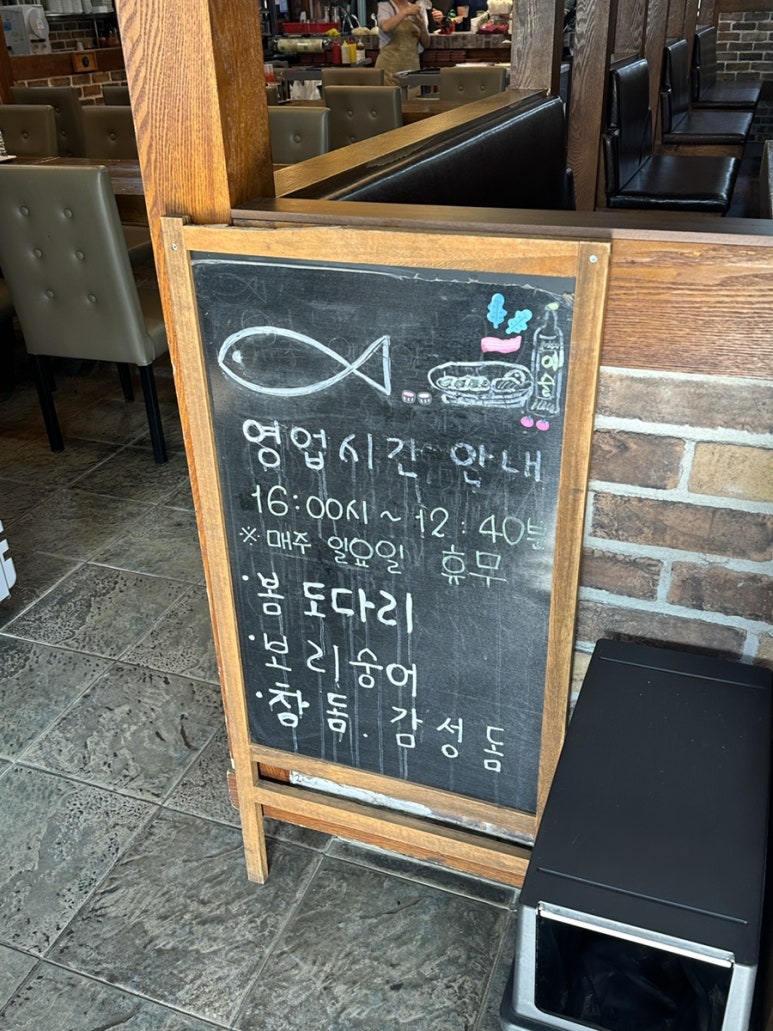 여수
영업시간 안내
16:00시~12:40분
※매주 일요일 휴무
·봄 도다리
·보리숭어
·참돔. 감성돔